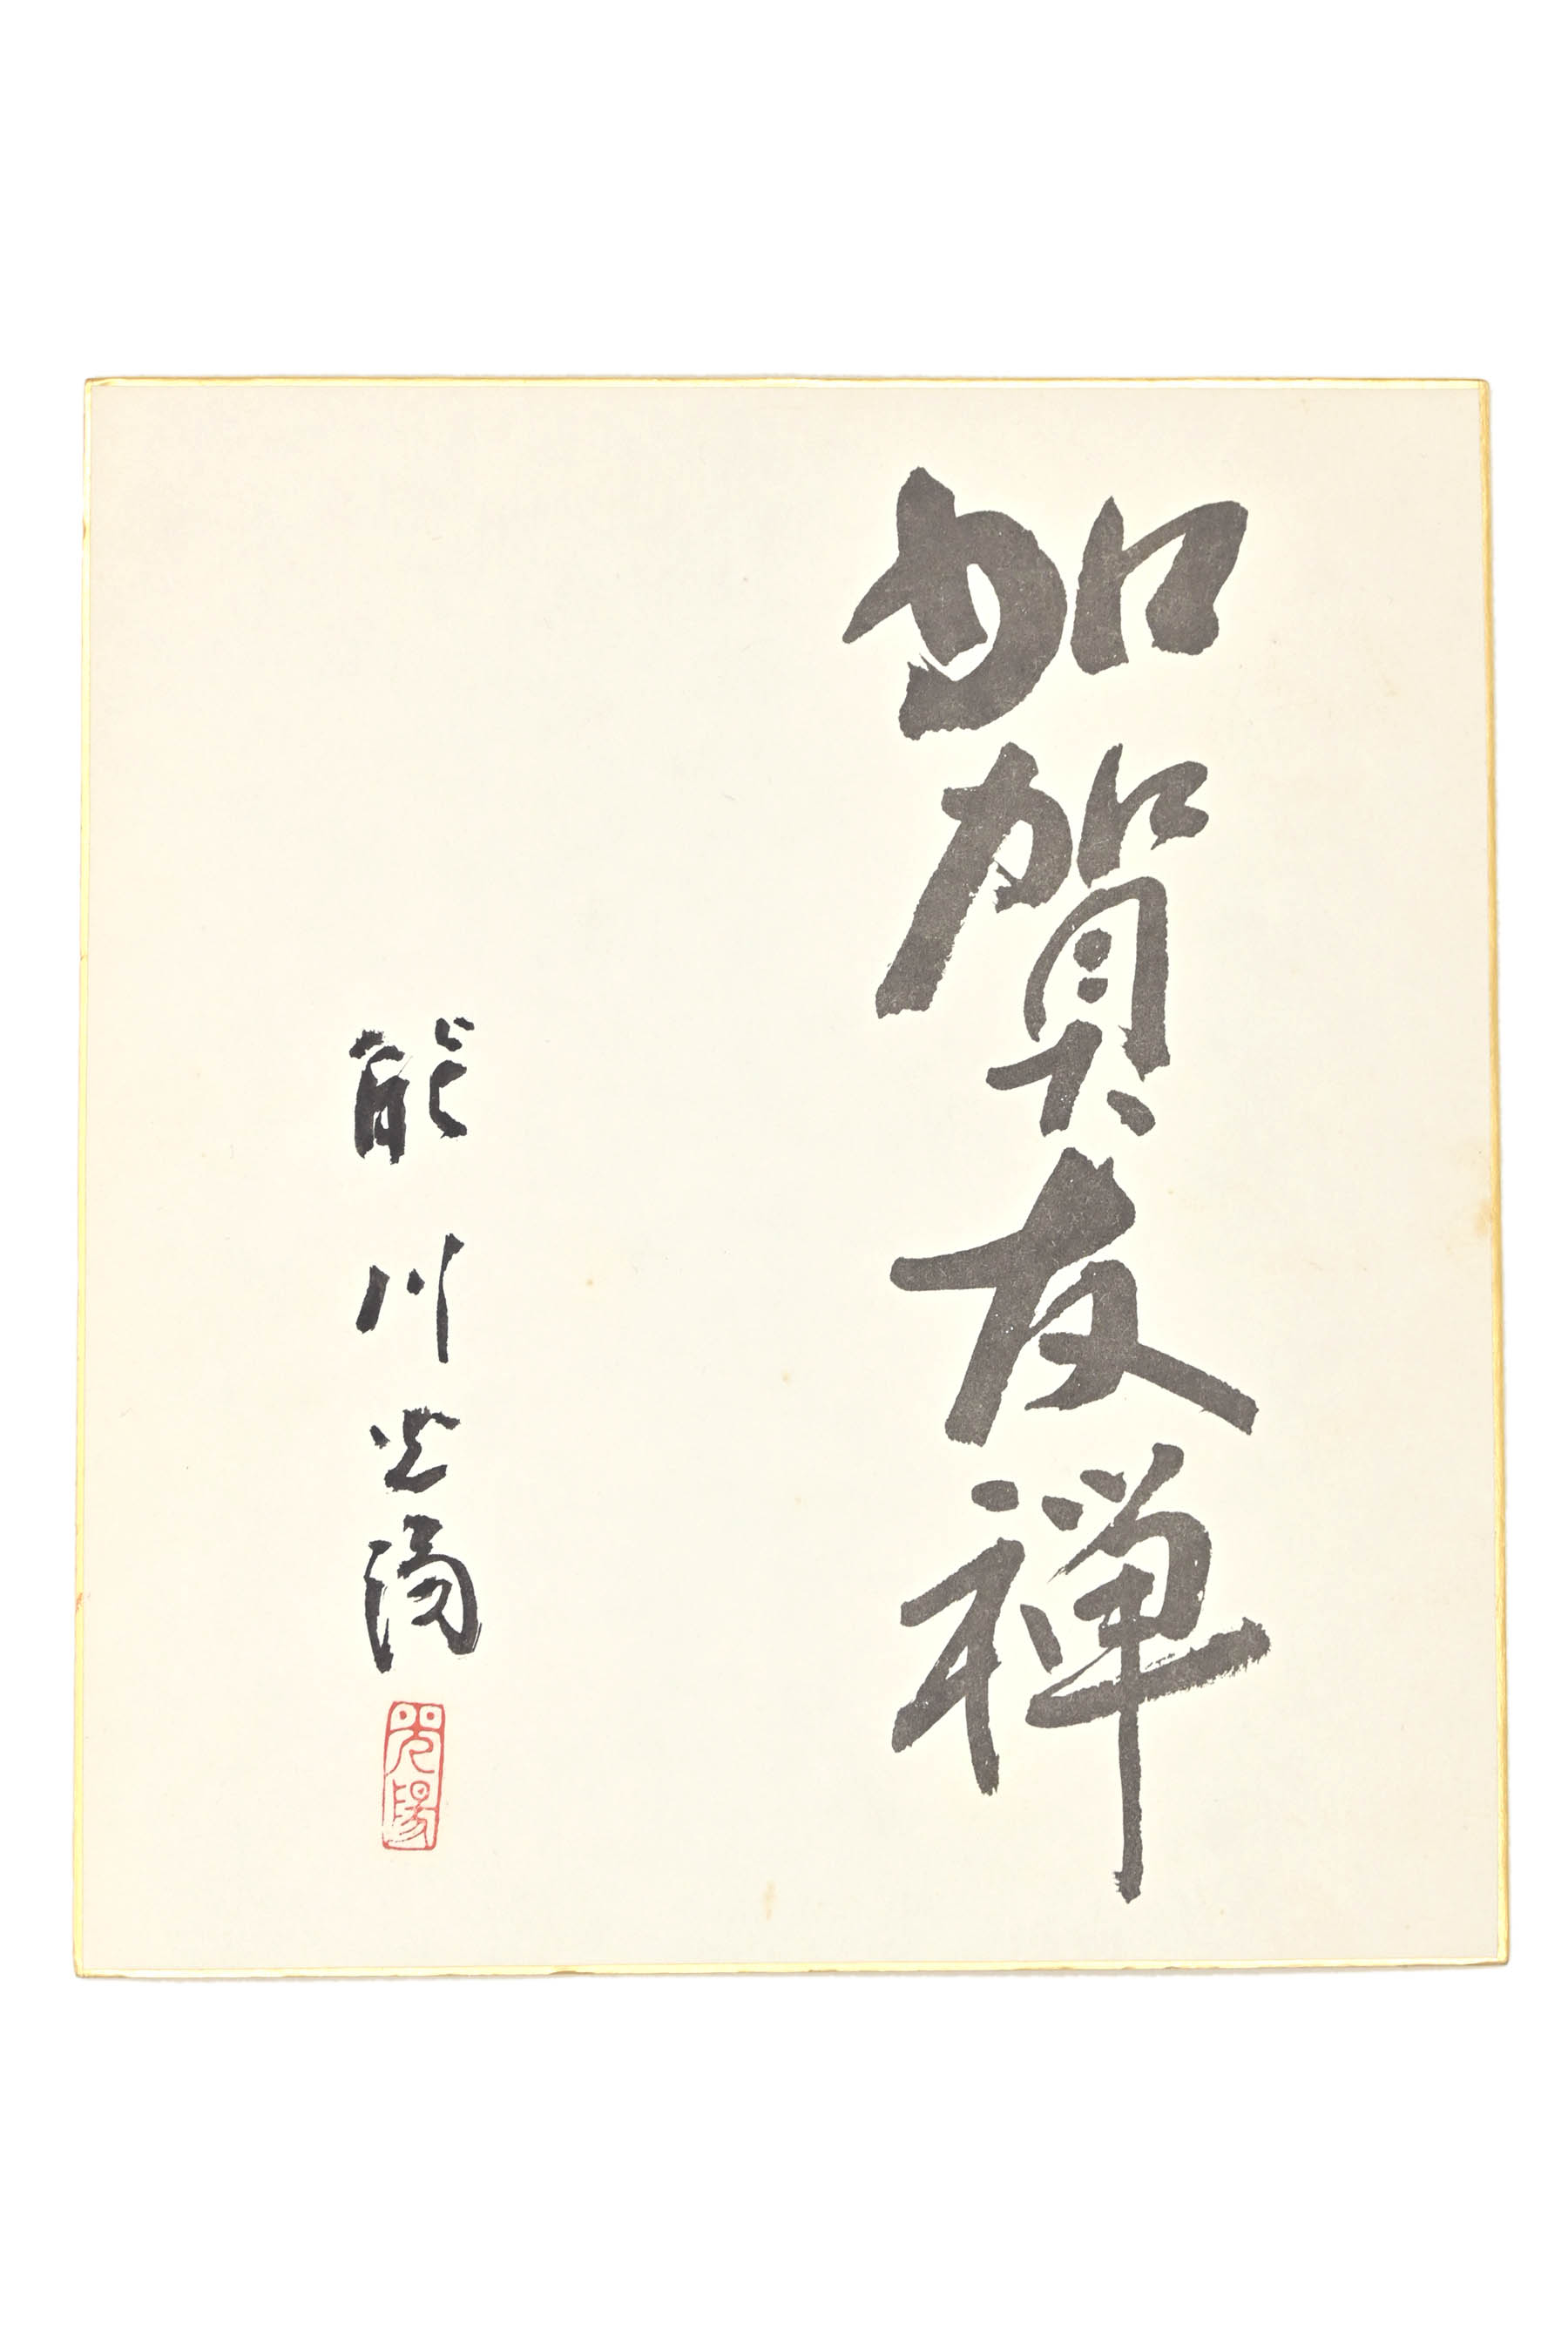 加賀友禅
能川光陽
光陽